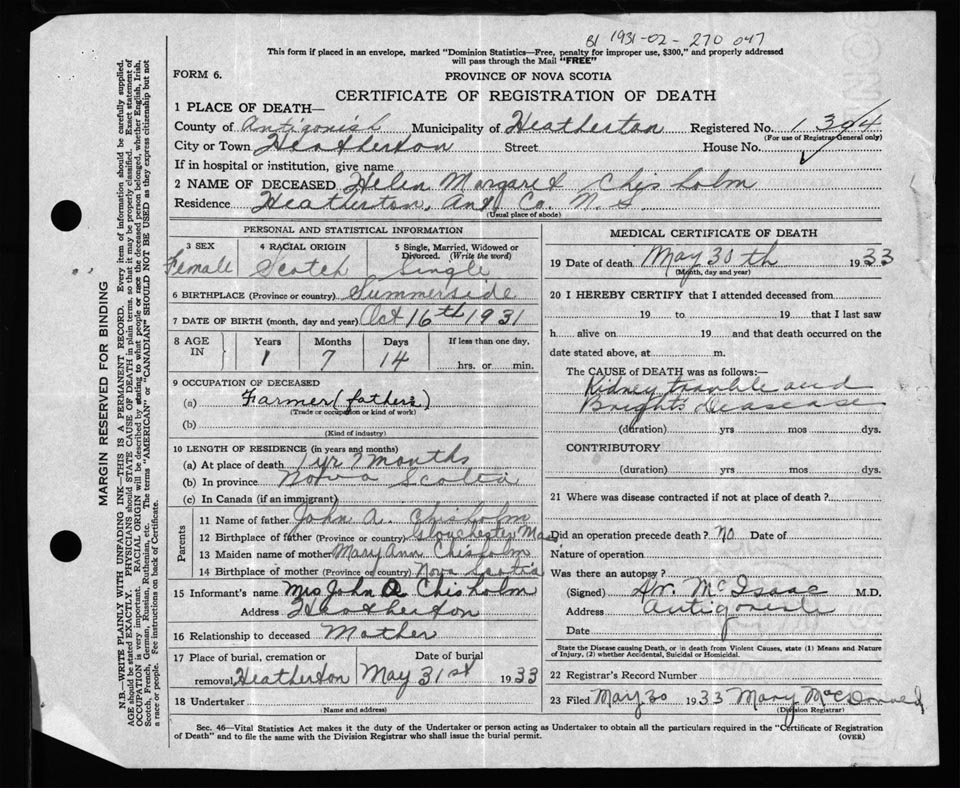 B1 1931-02-270 047
This form if placed in an envelope, marked "Dominion Statistics—Free, penalty for improper use, $300," and properly addressed
will pass through the Mail "FREE"
FORM 6.
PROVINCE OF NOVA SCOTIA
CERTIFICATE OF REGISTRATION OF DEATH
MARGIN RESERVED FOR BINDING
N.B.—WRITE PLAINLY WITH UNFADING INK—THIS IS A PERMANENT RECORD. Every item of information should be carefully supplied.
AGE should be stated EXACTLY. PHYSICIANS should STATE CAUSE OF DEATH in plain terms, so that it may be properly classified. Exact statement of
OCCUPATION is very important. RACIAL ORIGIN will be described by stating to what people or race the deceased person belonged, whether English, Irish,
Scotch, French, German, Russian, Ruthenian, etc. The terms "AMERICAN" or "CANADIAN" SHOULD NOT BE USED as they express citizenship but not
a race or people. See instructions on back of Certificate.
1 PLACE OF DEATH—
County of Antigonish Municipality of Heatherton Registered No. 1304
(For use of Registrar-General only)
City or Town Heatherton Street House No.
If in hospital or institution, give name
2 NAME OF DECEASED Helen Margaret Chisholm
Residence Heatherton, Ant. Co. N. S.
(Usual place of abode)
PERSONAL AND STATISTICAL INFORMATION
3 SEX 4 RACIAL ORIGIN 5 Single, Married, Widowed or
Divorced. (Write the word)
Female Scotch Single
6 BIRTHPLACE (Province or country) Summerside
7 DATE OF BIRTH (month, day and year) Oct 16th 1931
8 AGE IN Years Months Days If less than one day,
1 7 14 hrs. or min.
9 OCCUPATION OF DECEASED
(a) Farmer (fathers)
(Trade or occupation or kind of work)
(b)
(Kind of industry)
10 LENGTH OF RESIDENCE (in years and months)
(a) At place of death 1 yr 7 months
(b) In province Nova Scotia
(c) In Canada (if an immigrant)
Parents
11 Name of father John A. Chisholm
12 Birthplace of father (Province or country) Glouchester Mass
13 Maiden name of mother Mary Ann Chisholm
14 Birthplace of mother (Province or country) Nova Scotia
15 Informant's name Mrs John A Chisholm
Address Heatherton
16 Relationship to deceased Mother
17 Place of burial, cremation or Date of burial
removal Heatherton May 31st 1933
18 Undertaker
(Name and address)
MEDICAL CERTIFICATE OF DEATH
19 Date of death May 30th 1933
(Month, day and year)
20 I HEREBY CERTIFY that I attended deceased from
19 to 19 that I last saw
h alive on 19 and that death occurred on the
date stated above, at m.
The CAUSE of DEATH was as follows:—
Kidney trouble and
Brights Deasease
(duration) yrs mos dys.
CONTRIBUTORY
(duration) yrs mos dys.
21 Where was disease contracted if not at place of death?
Did an operation precede death? No Date of
Nature of operation
Was there an autopsy?
(Signed) Dr. McIsaac M.D.
Address Antigonish
Date
State the Disease causing Death, or in death from Violent Causes, state (1) Means and Nature
of Injury, (2) whether Accidental, Suicidal or Homicidal.
22 Registrar's Record Number
23 Filed May 30 1933 Mary McDonald
(Division Registrar)
Sec. 46—Vital Statistics Act makes it the duty of the Undertaker or person acting as Undertaker to obtain all the particulars required in the "Certificate of Registration
of Death" and to file the same with the Division Registrar who shall issue the burial permit.
(OVER)